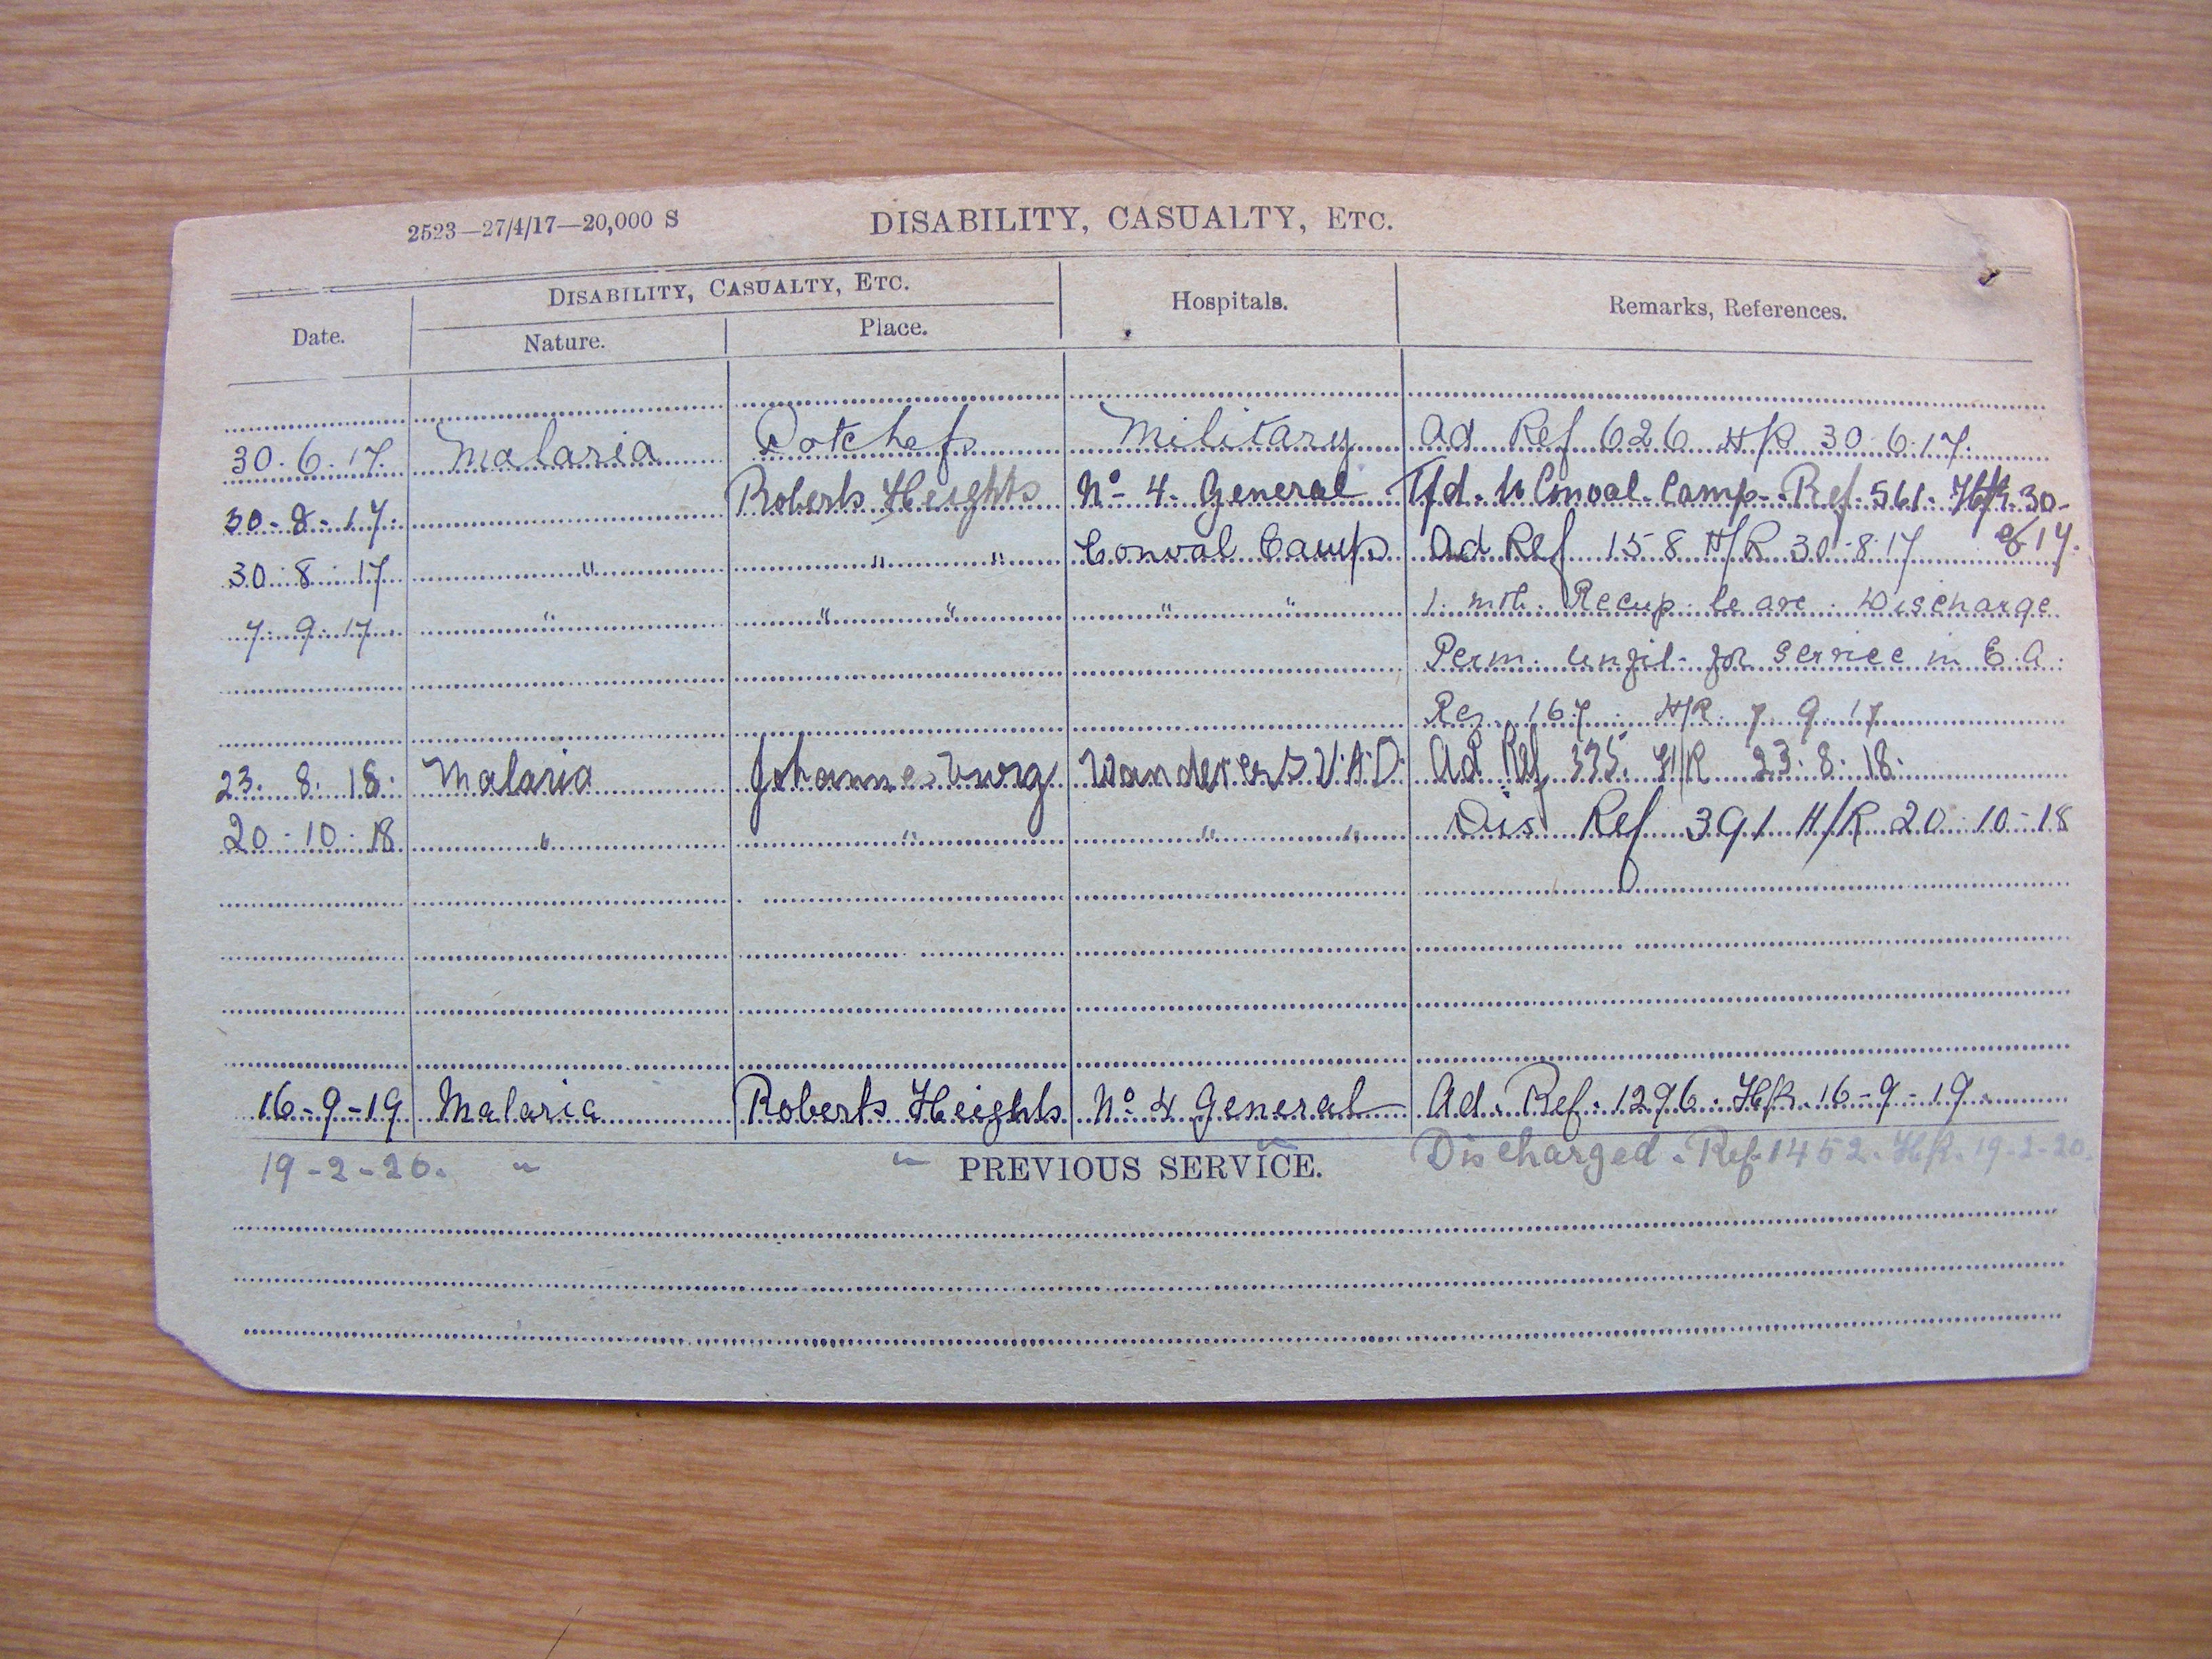 2523—27/4/17—20,000 S
DISABILITY, CASUALTY, ETC.
Date. DISABILITY, CASUALTY, ETC. Hospitals. Remarks, References.
Nature. Place.
30.6.17. Malaria Potchefs Military Ad Ref 626 H/R 30.6.17.
30-8-17. Roberts Heights No 4. General Tfd. to Conval. Camp. Ref. 561. H/R. 30-8/17.
30.8.17 " " " Conval Camp Ad Ref 158 H/R 30.8.17
7.9.17 " " " " " 1. mth. Recup. leave. Discharge
Perm. unfit for service in E.A.
Ref. 167 H/R. 7.9.17
23.8.18. Malaria Johannesburg Wanderers V.A.D. Ad Ref 335 H/R 23.8.18.
20.10.18 " " " " Dis Ref 391 H/R 20.10.18
16-9-19 Malaria Roberts Heights No 4 General Ad. Ref. 1296. H/R. 16-9-19
19-2-20. " " " Discharged. Ref. 1452. H/R. 19-2-20.
PREVIOUS SERVICE.